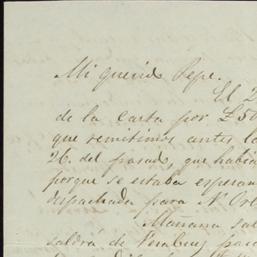 Mi querido Pepe.
El 2
de la carta por £50
que remitimos antes la
26. del pasado, que habia
porque se estaba esperan
despachada para N. Orl
Mañana sal
saldrá de